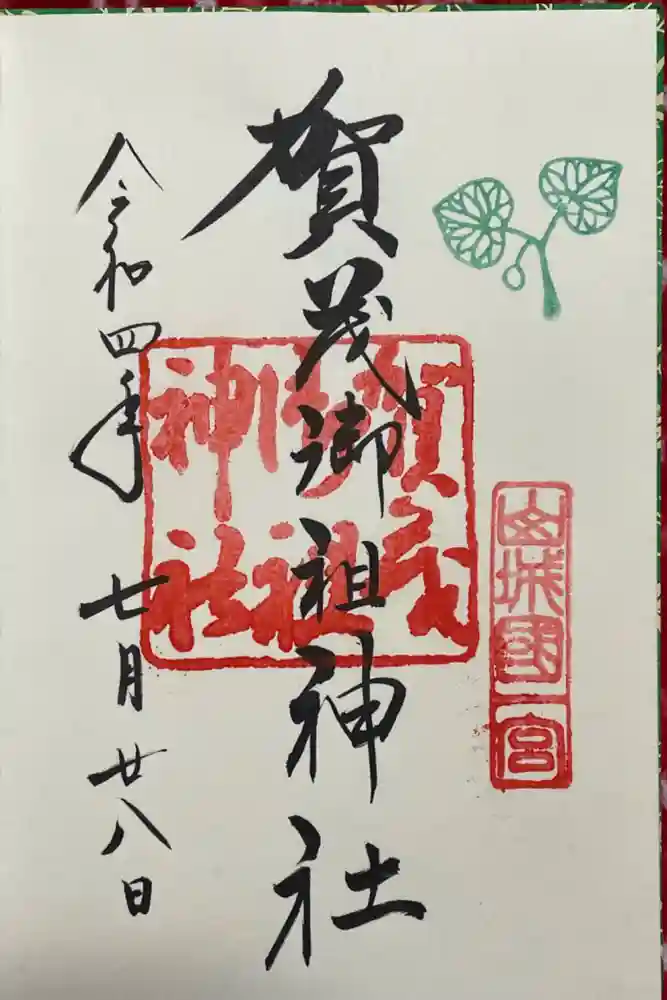 山城國一宮
賀茂御祖神社
賀茂御祖神社
令和四年 七月廿八日